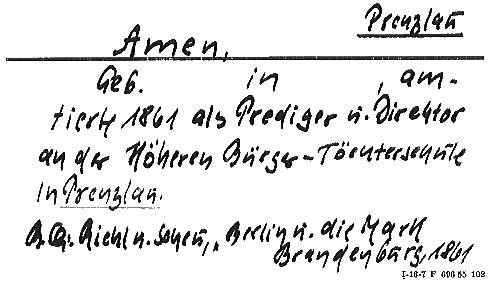 Prenzlau
Amen,
Geb. in , am-
tierte 1861 als Prediger u. Direktor
an der Höheren Bürger-Töchterschule
in Prenzlau.
Riehl u. Scheu, „Berlin u. die Mark
Brandenburg, 1861
I-16-7 F 696 55 102